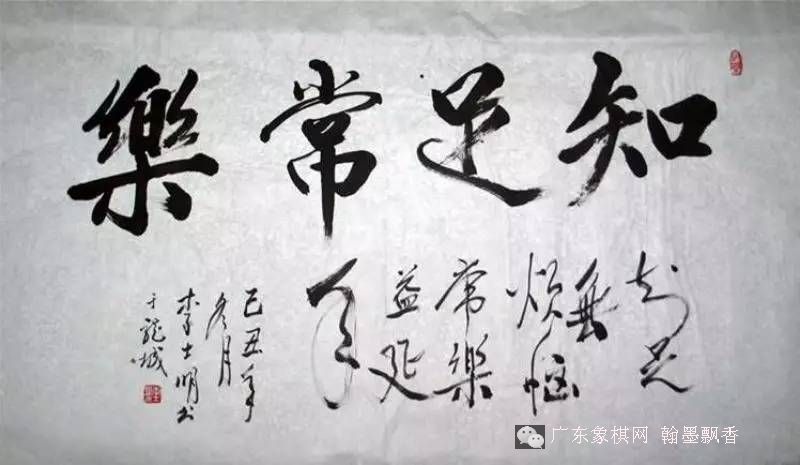 知足常樂
知足
無
煩惱
常樂
益延
年
己丑年
冬月
李士明书
于龍城
广东象棋网 翰墨飘香